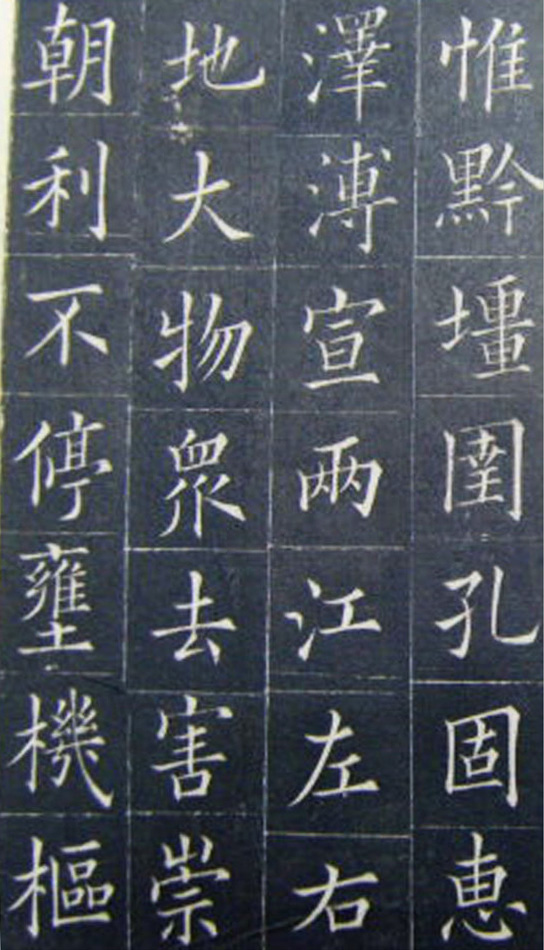 惟黔壃圉孔固恵
澤溥宣兩江左右
地大物眾去害崇
朝利不停壅機樞